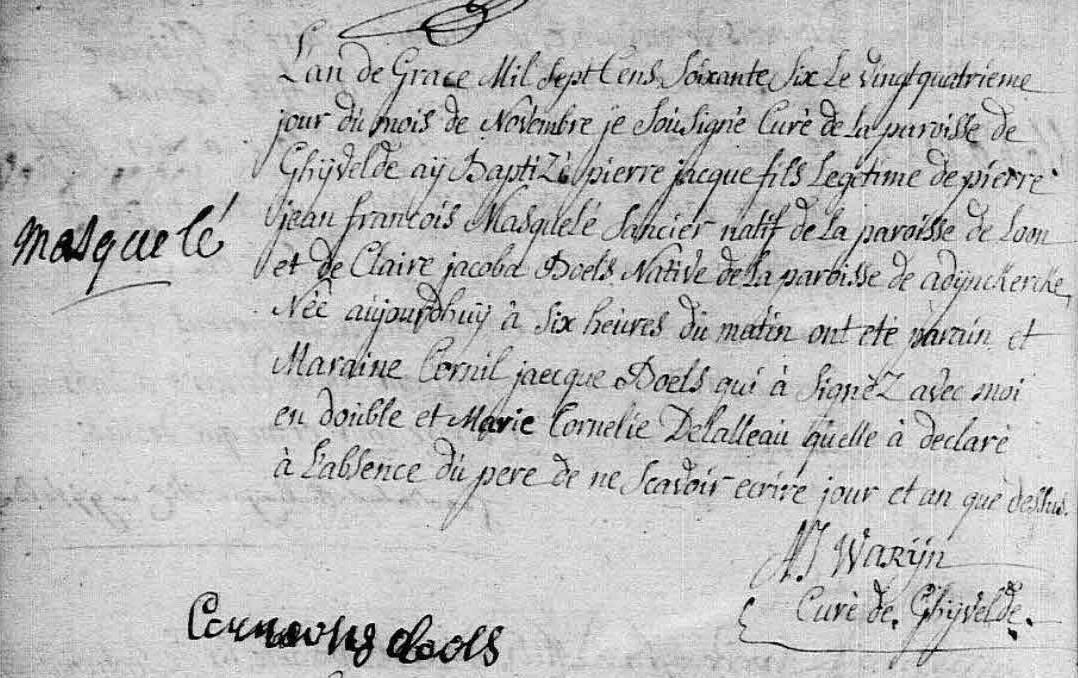 L'an de Grace Mil Sept Cens Soixante Six Le vingt quatrieme
jour du mois de Novembre je Sousigné Curé de La paroisse de
Ghÿvelde aÿ Baptizé pierre jacque fils Legitime de pierre
Masquelé
jean francois Masquelé Sancier natif de La paroisse de Loon
et de Claire jacoba Doels Native de La paroisse de adÿnckercke
Néé aujourdhuÿ à Six heures du matin ont eté parain et
Maraine Cornil jaecque Doels qui à SignéZ avec moi
en double et Marie Cornelie Delalleau quelle à declaré
à L'absence du pere de ne Scavoir ecrire jour et an que dessus.
Warÿn
Curé de Ghÿvelde.
dools